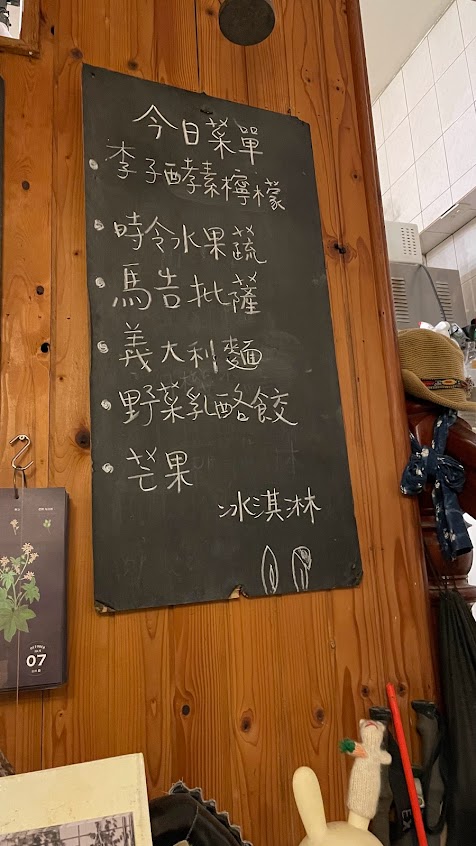 今日菜單
李子酵素檸檬
時令水果蔬
馬告批薩
義大利麵
野菜乳酪餃
芒果
冰淇淋
07